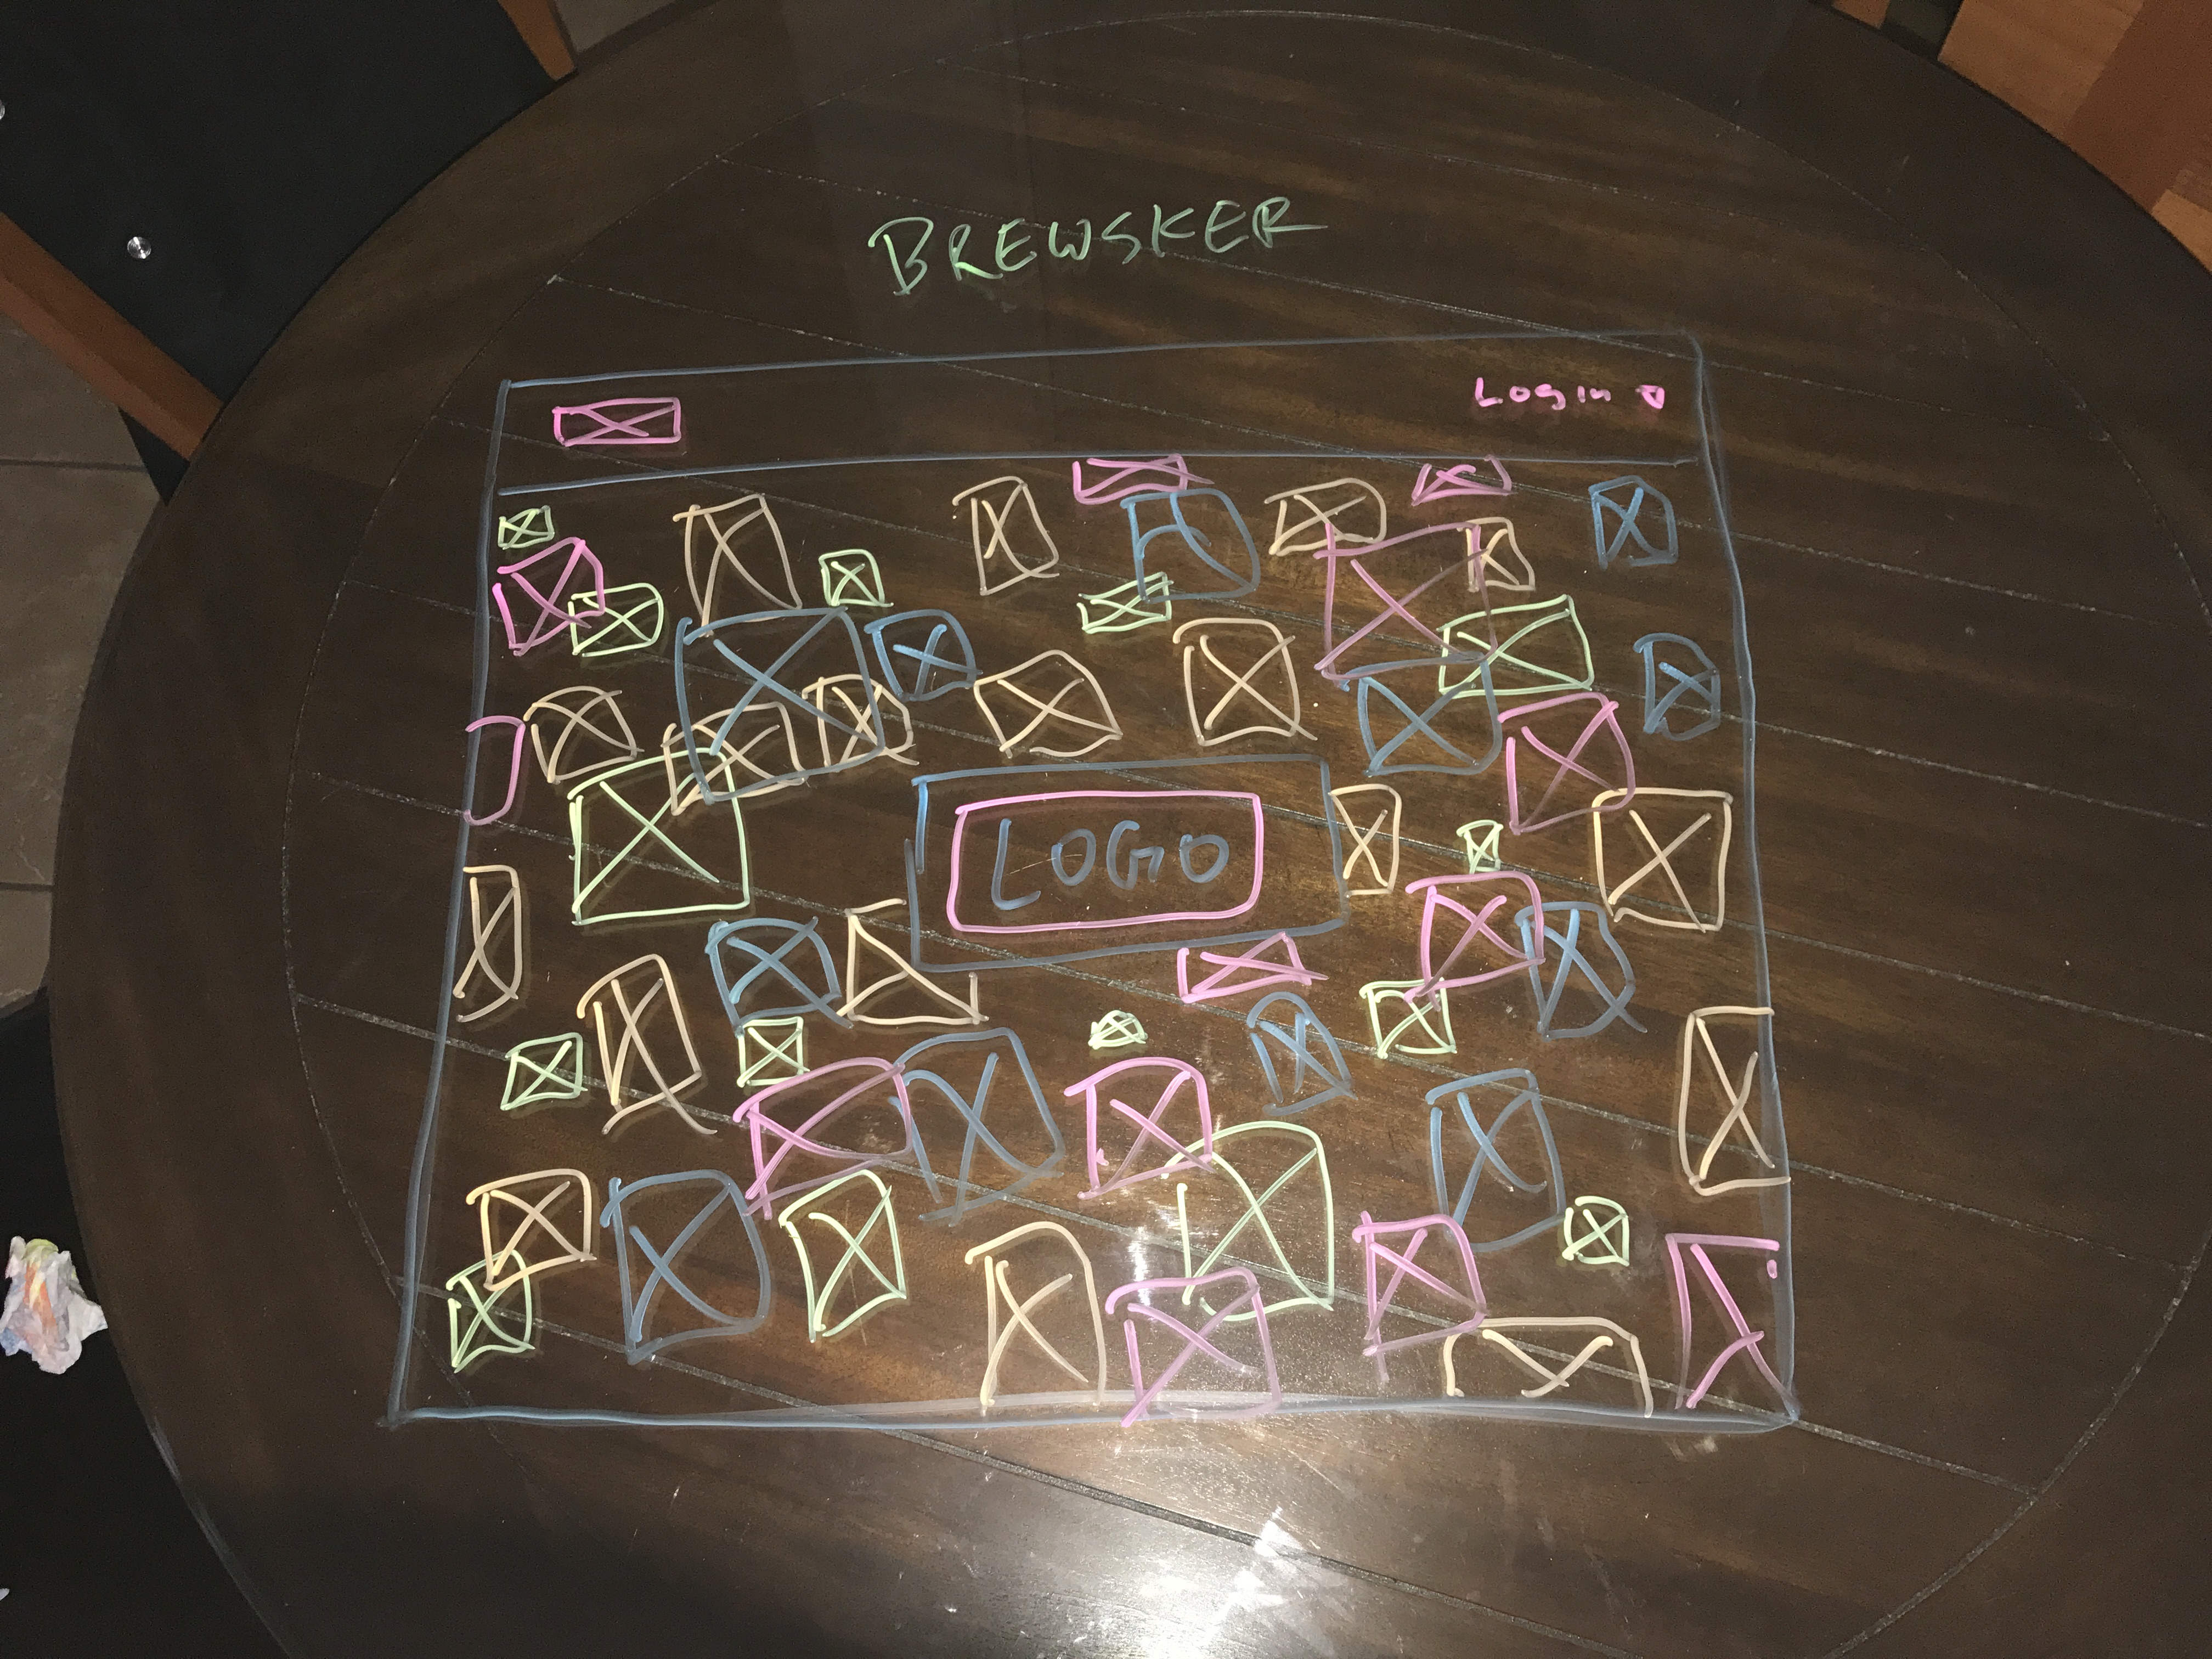 BREWSKER
Login
LOGO